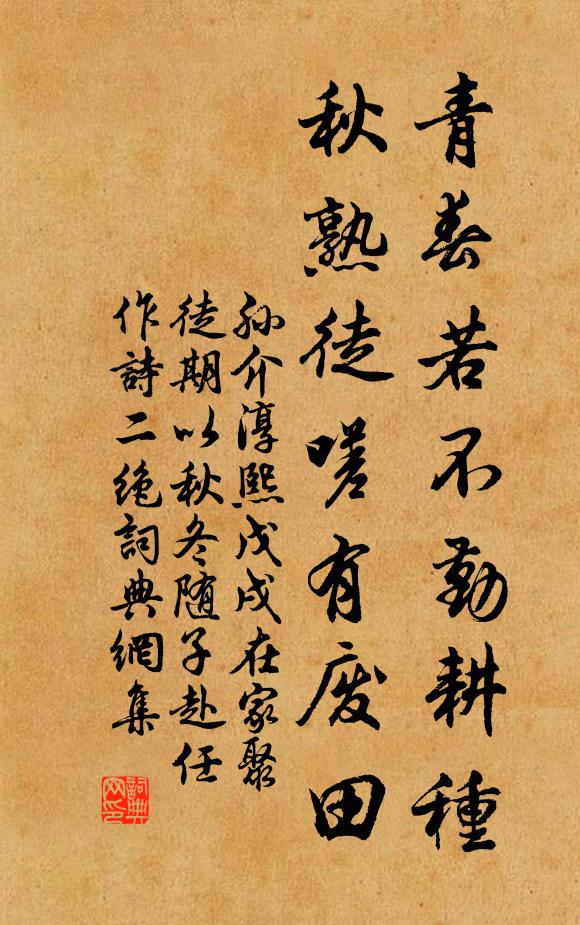 青春若不勤耕種
秋熟徒嗟有廢田
孫介淳熙戊戌在家聚
徒期以秋冬随子赴任
作詩二絶詞典網集
詞典網印